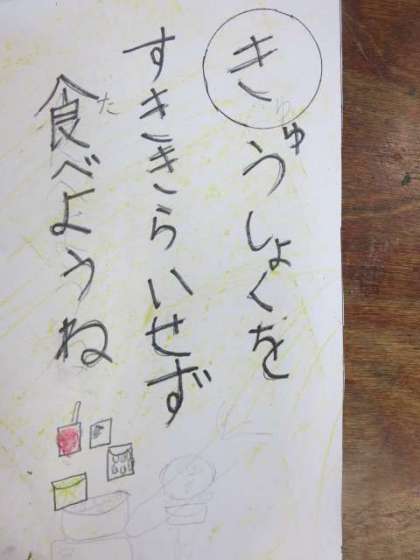 きゅうしょくを
すききらいせず
食べようね
た